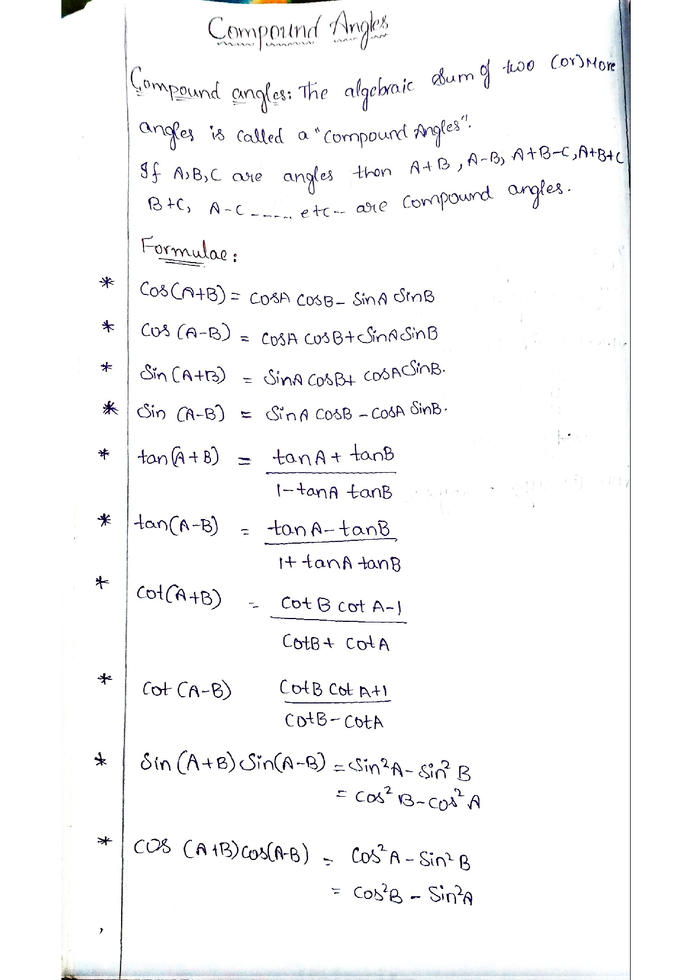 Compound Angles
Compound angles: The algebraic sum of two (or) More
angles is called a "compound Angles".
If A,B,C are angles then A+B, A-B, A+B-C, A+B+C
B+C, A-C ------ etc-- are compound angles.
Formulae:
* Cos(A+B) = cosA cosB - SinA SinB
* Cos (A-B) = cosA cosB + SinA SinB
* Sin (A+B) = SinA CosB + cosA SinB.
* Sin (A-B) = SinA cosB - cosA SinB.
* tan(A+B) = tanA + tanB
1-tanA tanB
* tan(A-B) = tanA - tanB
1+ tanA tanB
* cot(A+B) = Cot B cot A-1
CotB + cotA
* Cot (A-B) CotB Cot A+1
CotB - CotA
* Sin (A+B) Sin(A-B) = Sin²A - Sin² B
= cos² B - cos² A
* COS (A+B) cos(A-B) = Cos²A - Sin² B
= Cos²B - Sin²A